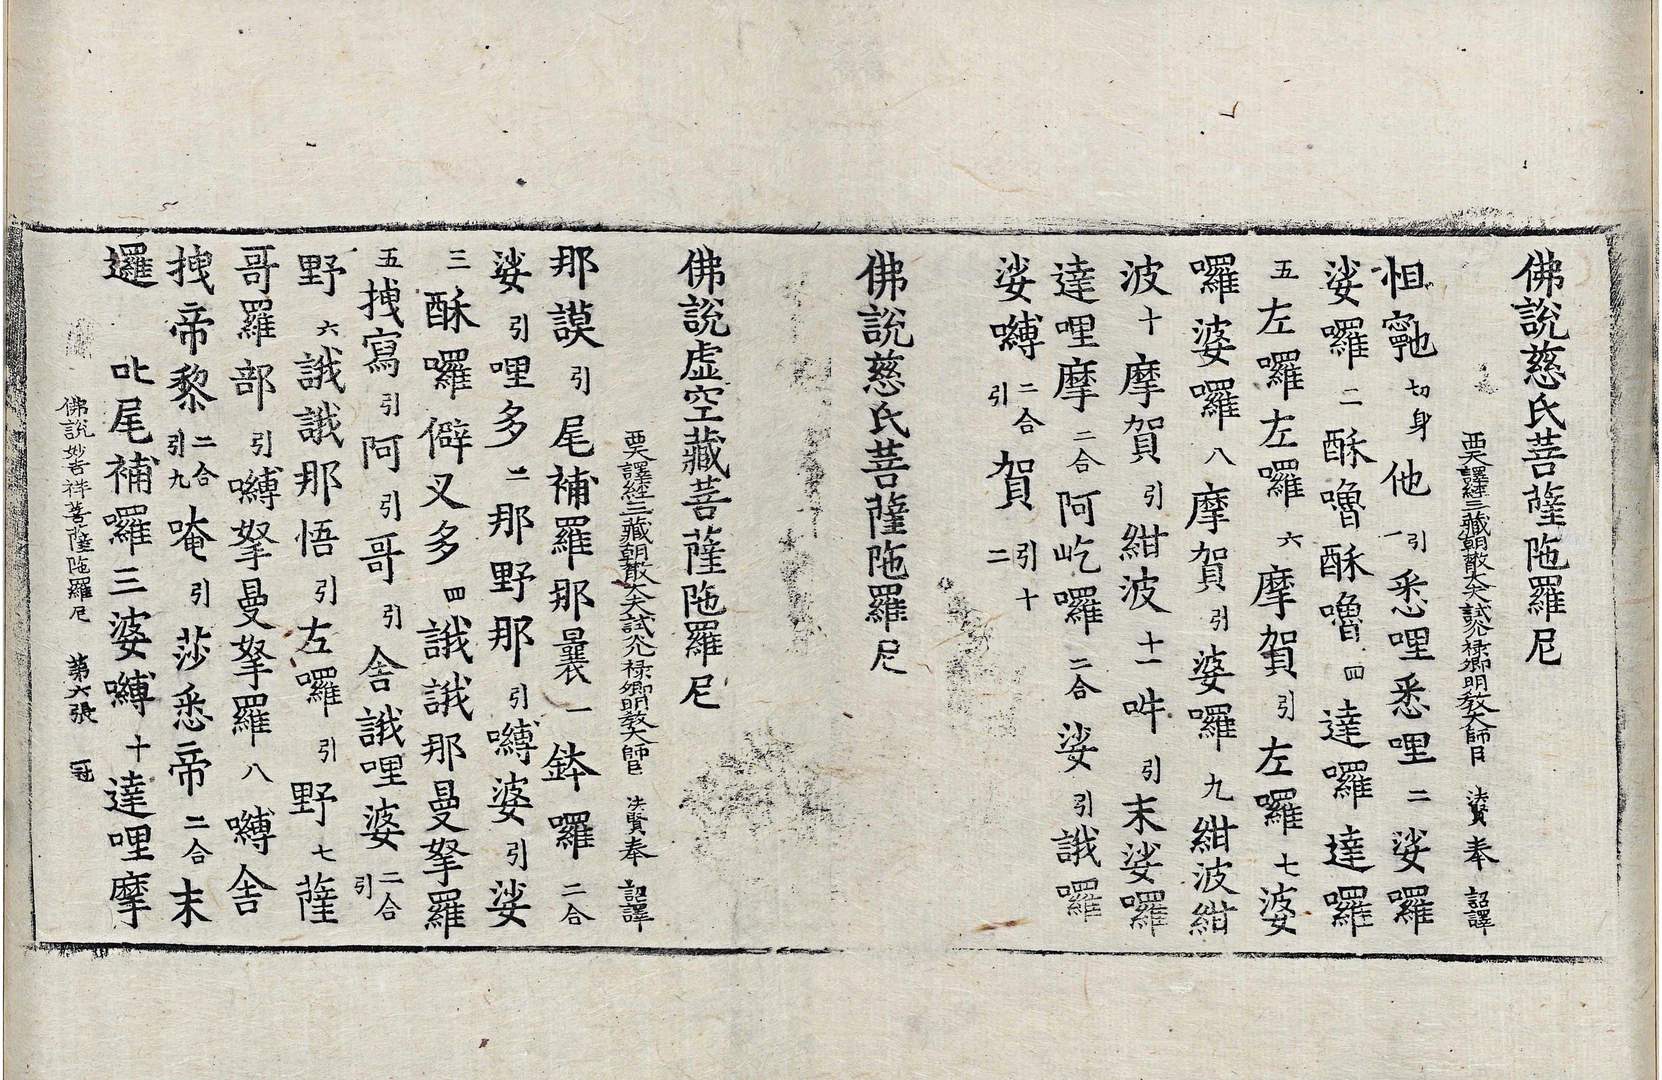 佛說慈氏菩薩陁羅尼
西天譯經三藏朝散大夫試光祿卿明教大師臣法賢奉 詔譯
怛寧也切身他引一悉哩悉哩二娑囉
娑囉二酥嚕酥嚕四達囉達囉
五左囉左囉六摩賀引左囉七婆
囉婆囉八摩賀引婆囉九紺波紺
波十摩賀引紺波十一吽引末娑囉
達哩摩二合阿屹囉二合娑引誐囉
娑嚩二合引賀引十二
佛說慈氏菩薩陁羅尼
佛說虛空藏菩薩陁羅尼
西天譯經三藏朝散大夫試光祿卿明教大師臣法賢奉 詔譯
那謨引尾補羅那曩一鉢囉二合
娑引哩多二那野那引嚩婆引娑
三酥囉僻叉多四誐誐那曼拏羅
五拽寫引阿引哥引舍誐哩婆二合引
野六誐誐那悟引左囉引野七薩
哥羅部引嚩拏曼拏羅八嚩舍
拽帝黎二合引九唵引莎悉帝二合末
邏 吐尾補囉三婆嚩十達哩摩
佛說妙吉祥菩薩陁羅尼 第六張 冠